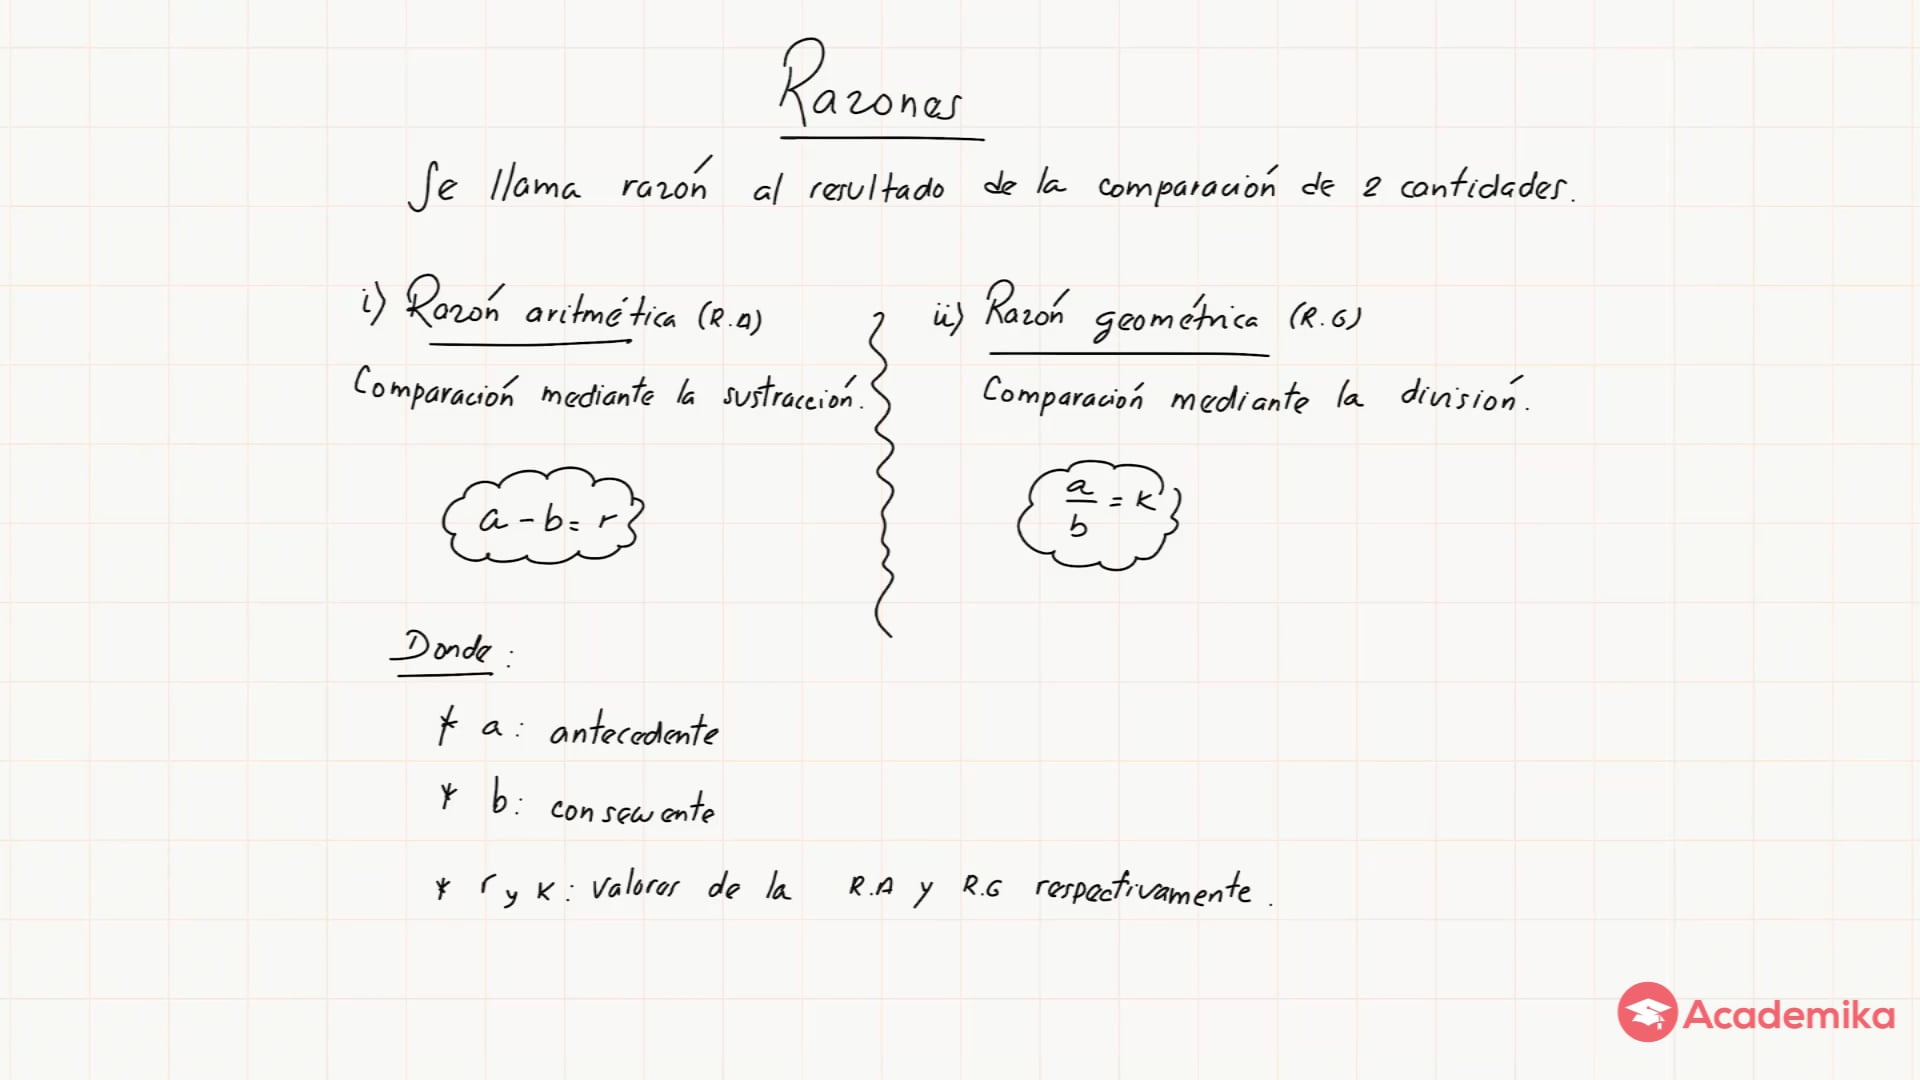 Razones
Se llama razón al resultado de la comparación de 2 cantidades.
i) Razón aritmética (R.A)
Comparación mediante la sustracción.
a - b = r
ii) Razón geométrica (R.G)
Comparación mediante la división.
a/b = k
Donde:
* a: antecedente
* b: consecuente
* r y k: valores de la R.A y R.G respectivamente.
Academika